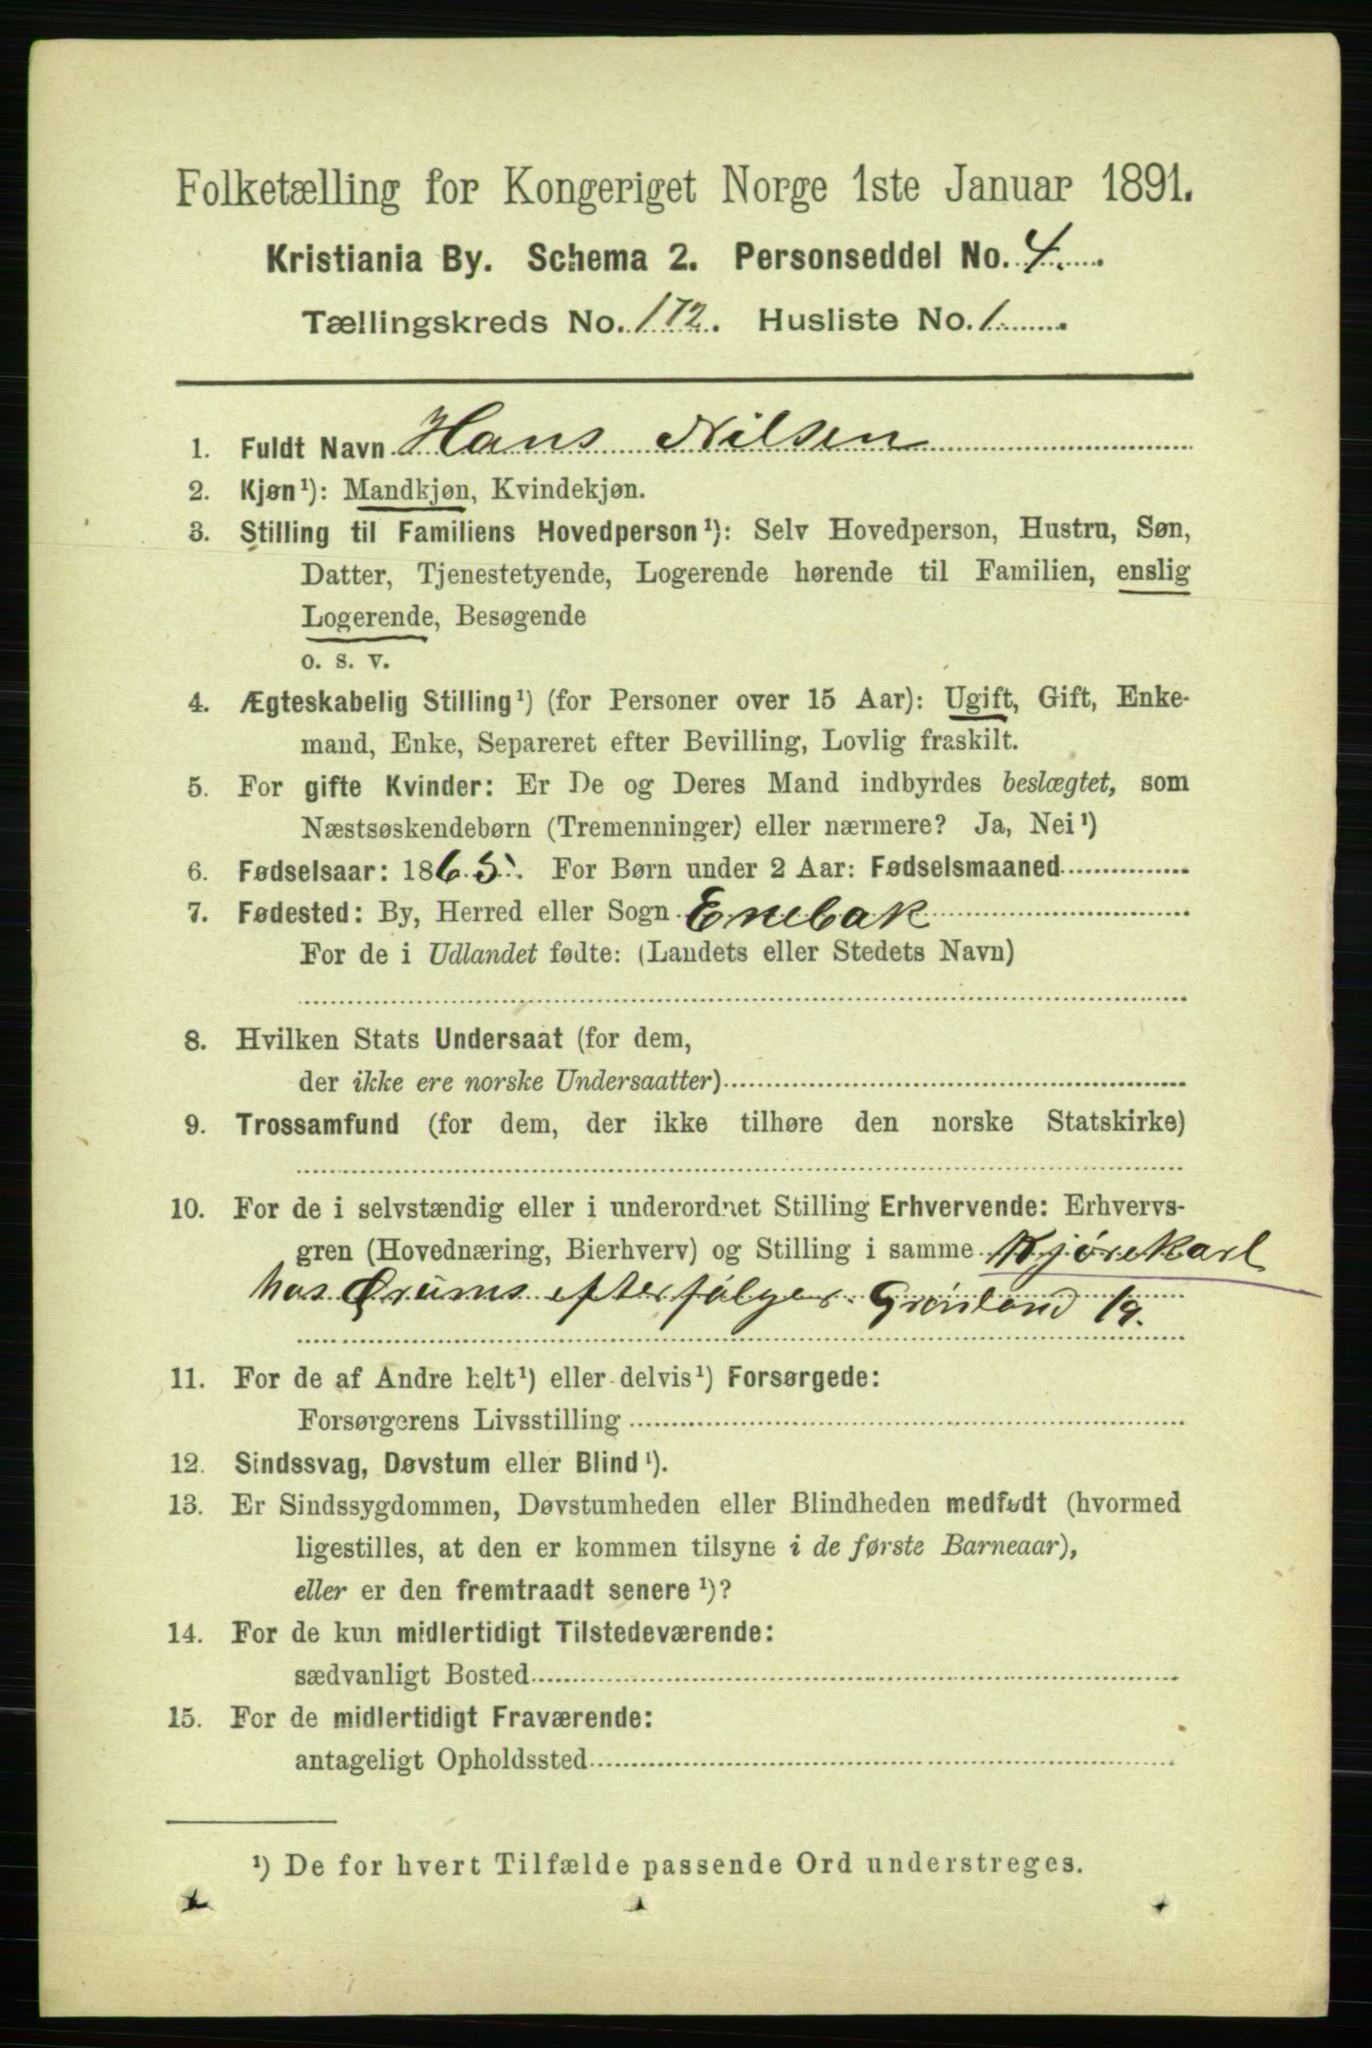 Folketælling for Kongeriget Norge 1ste Januar 1891.
Kristiania By. Schema 2. Personseddel No. 4.
Tællingskreds No. 172. Husliste No. 1
1. Fuldt Navn Hans Nilsen
2. Kjøn¹): Mandkjøn, Kvindekjøn.
3. Stilling til Familiens Hovedperson¹): Selv Hovedperson, Hustru, Søn,
Datter, Tjenestetyende, Logerende hørende til Familien, enslig
Logerende, Besøgende
o. s. v.
4. Ægteskabelig Stilling¹) (for Personer over 15 Aar): Ugift, Gift, Enke-
mand, Enke, Separeret efter Bevilling, Lovlig fraskilt.
5. For gifte Kvinder: Er De og Deres Mand indbyrdes beslægtet, som
Næstsøskendebørn (Tremenninger) eller nærmere? Ja, Nei¹)
6. Fødselsaar: 1865. For Børn under 2 Aar: Fødselsmaaned
7. Fødested: By, Herred eller Sogn Enebak
For de i Udlandet fødte: (Landets eller Stedets Navn)
8. Hvilken Stats Undersaat (for dem,
der ikke ere norske Undersaatter)
9. Trossamfund (for dem, der ikke tilhøre den norske Statskirke)
10. For de i selvstændig eller i underordnet Stilling Erhvervende: Erhvervs-
gren (Hovednæring, Bierhverv) og Stilling i samme Kjørekarl
hos Ørums efterfølger Grønland 19.
11. For de af Andre helt¹) eller delvis¹) Forsørgede:
Forsørgerens Livsstilling
12. Sindssvag, Døvstum eller Blind¹).
13. Er Sindssygdommen, Døvstumheden eller Blindheden medfødt (hvormed
ligestilles, at den er kommen tilsyne i de første Barneaar),
eller er den fremtraadt senere¹)?
14. For de kun midlertidigt Tilstedeværende:
sædvanligt Bosted
15. For de midlertidigt Fraværende:
antageligt Opholdssted
¹) De for hvert Tilfælde passende Ord understreges.